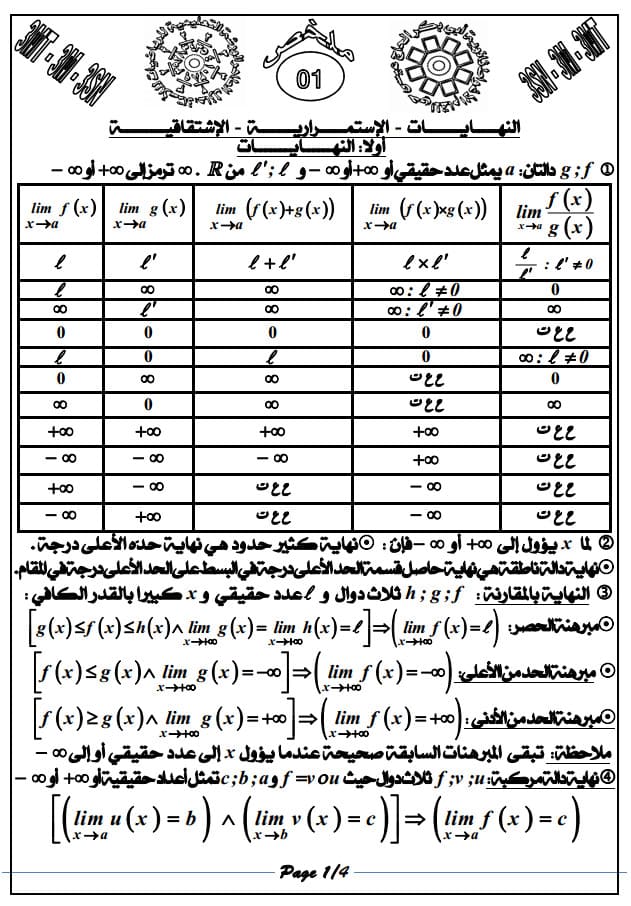 3MT - 3M - 3SN
ملخص
01
3SN - 3M - 3MT
النهايات - الإستمرارية - الإشتقاقية
أولا: النهايات
① f ; g دالتان: a يمثل عدد حقيقي أو ∞+ أو ∞− و ℓ ; ℓ' من ℝ . ∞ ترمز إلى ∞+ أو ∞−
lim f(x) x→a | lim g(x) x→a | lim (f(x)+g(x)) x→a | lim (f(x)×g(x)) x→a | lim f(x)/g(x) x→a
ℓ | ℓ' | ℓ + ℓ' | ℓ × ℓ' | ℓ/ℓ' : ℓ' ≠ 0
ℓ | ∞ | ∞ | ∞ : ℓ ≠ 0 | 0
∞ | ℓ' | ∞ | ∞ : ℓ' ≠ 0 | ∞
0 | 0 | 0 | 0 | ح ع ت
ℓ | 0 | ℓ | 0 | ∞ : ℓ ≠ 0
0 | ∞ | ∞ | ح ع ت | 0
∞ | 0 | ∞ | ح ع ت | ∞
+∞ | +∞ | +∞ | +∞ | ح ع ت
−∞ | −∞ | −∞ | +∞ | ح ع ت
+∞ | −∞ | ح ع ت | −∞ | ح ع ت
−∞ | +∞ | ح ع ت | −∞ | ح ع ت
② لما x يؤول إلى ∞+ أو ∞− فإن: ⊙ نهاية كثير حدود هي نهاية حده الأعلى درجة.
⊙ نهاية دالة ناطقة هي نهاية حاصل قسمة الحد الأعلى درجة في البسط على الحد الأعلى درجة في المقام.
③ النهاية بالمقارنة: f ; g ; h ثلاث دوال و ℓ عدد حقيقي و x كبيرا بالقدر الكافي:
⊙ مبرهنة الحصر: [g(x)≤f(x)≤h(x)∧ lim g(x)= lim h(x)=ℓ]⇒(lim f(x)=ℓ) x→+∞ x→+∞ x→+∞
⊙ مبرهنة الحد من الأعلى: [f(x)≤g(x)∧ lim g(x)=−∞]⇒(lim f(x)=−∞) x→+∞ x→+∞
⊙ مبرهنة الحد من الأدنى: [f(x)≥g(x)∧ lim g(x)=+∞]⇒(lim f(x)=+∞) x→+∞ x→+∞
ملاحظة: تبقى المبرهنات السابقة صحيحة عندما يؤول x إلى عدد حقيقي أو إلى ∞−
④ نهاية دالة مركبة: f ; v ; u ثلاث دوال حيث f =vou و c ; b ; a تمثل أعداد حقيقية أو ∞+ أو ∞−
[(lim u(x)=b) ∧ (lim v(x)=c)]⇒(lim f(x)=c) x→a x→b x→a
Page 1/4